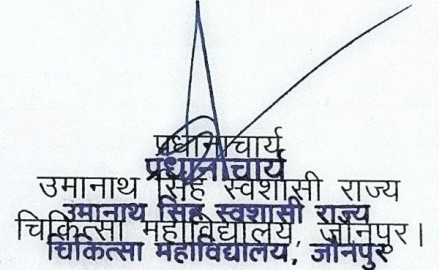 प्रधानाचार्य
प्रधानाचार्य
उमानाथ सिंह स्वशासी राज्य
उमानाथ सिंह स्वशासी राज्य
चिकित्सा महाविद्यालय, जौनपुर।
चिकित्सा महाविद्यालय, जौनपुर